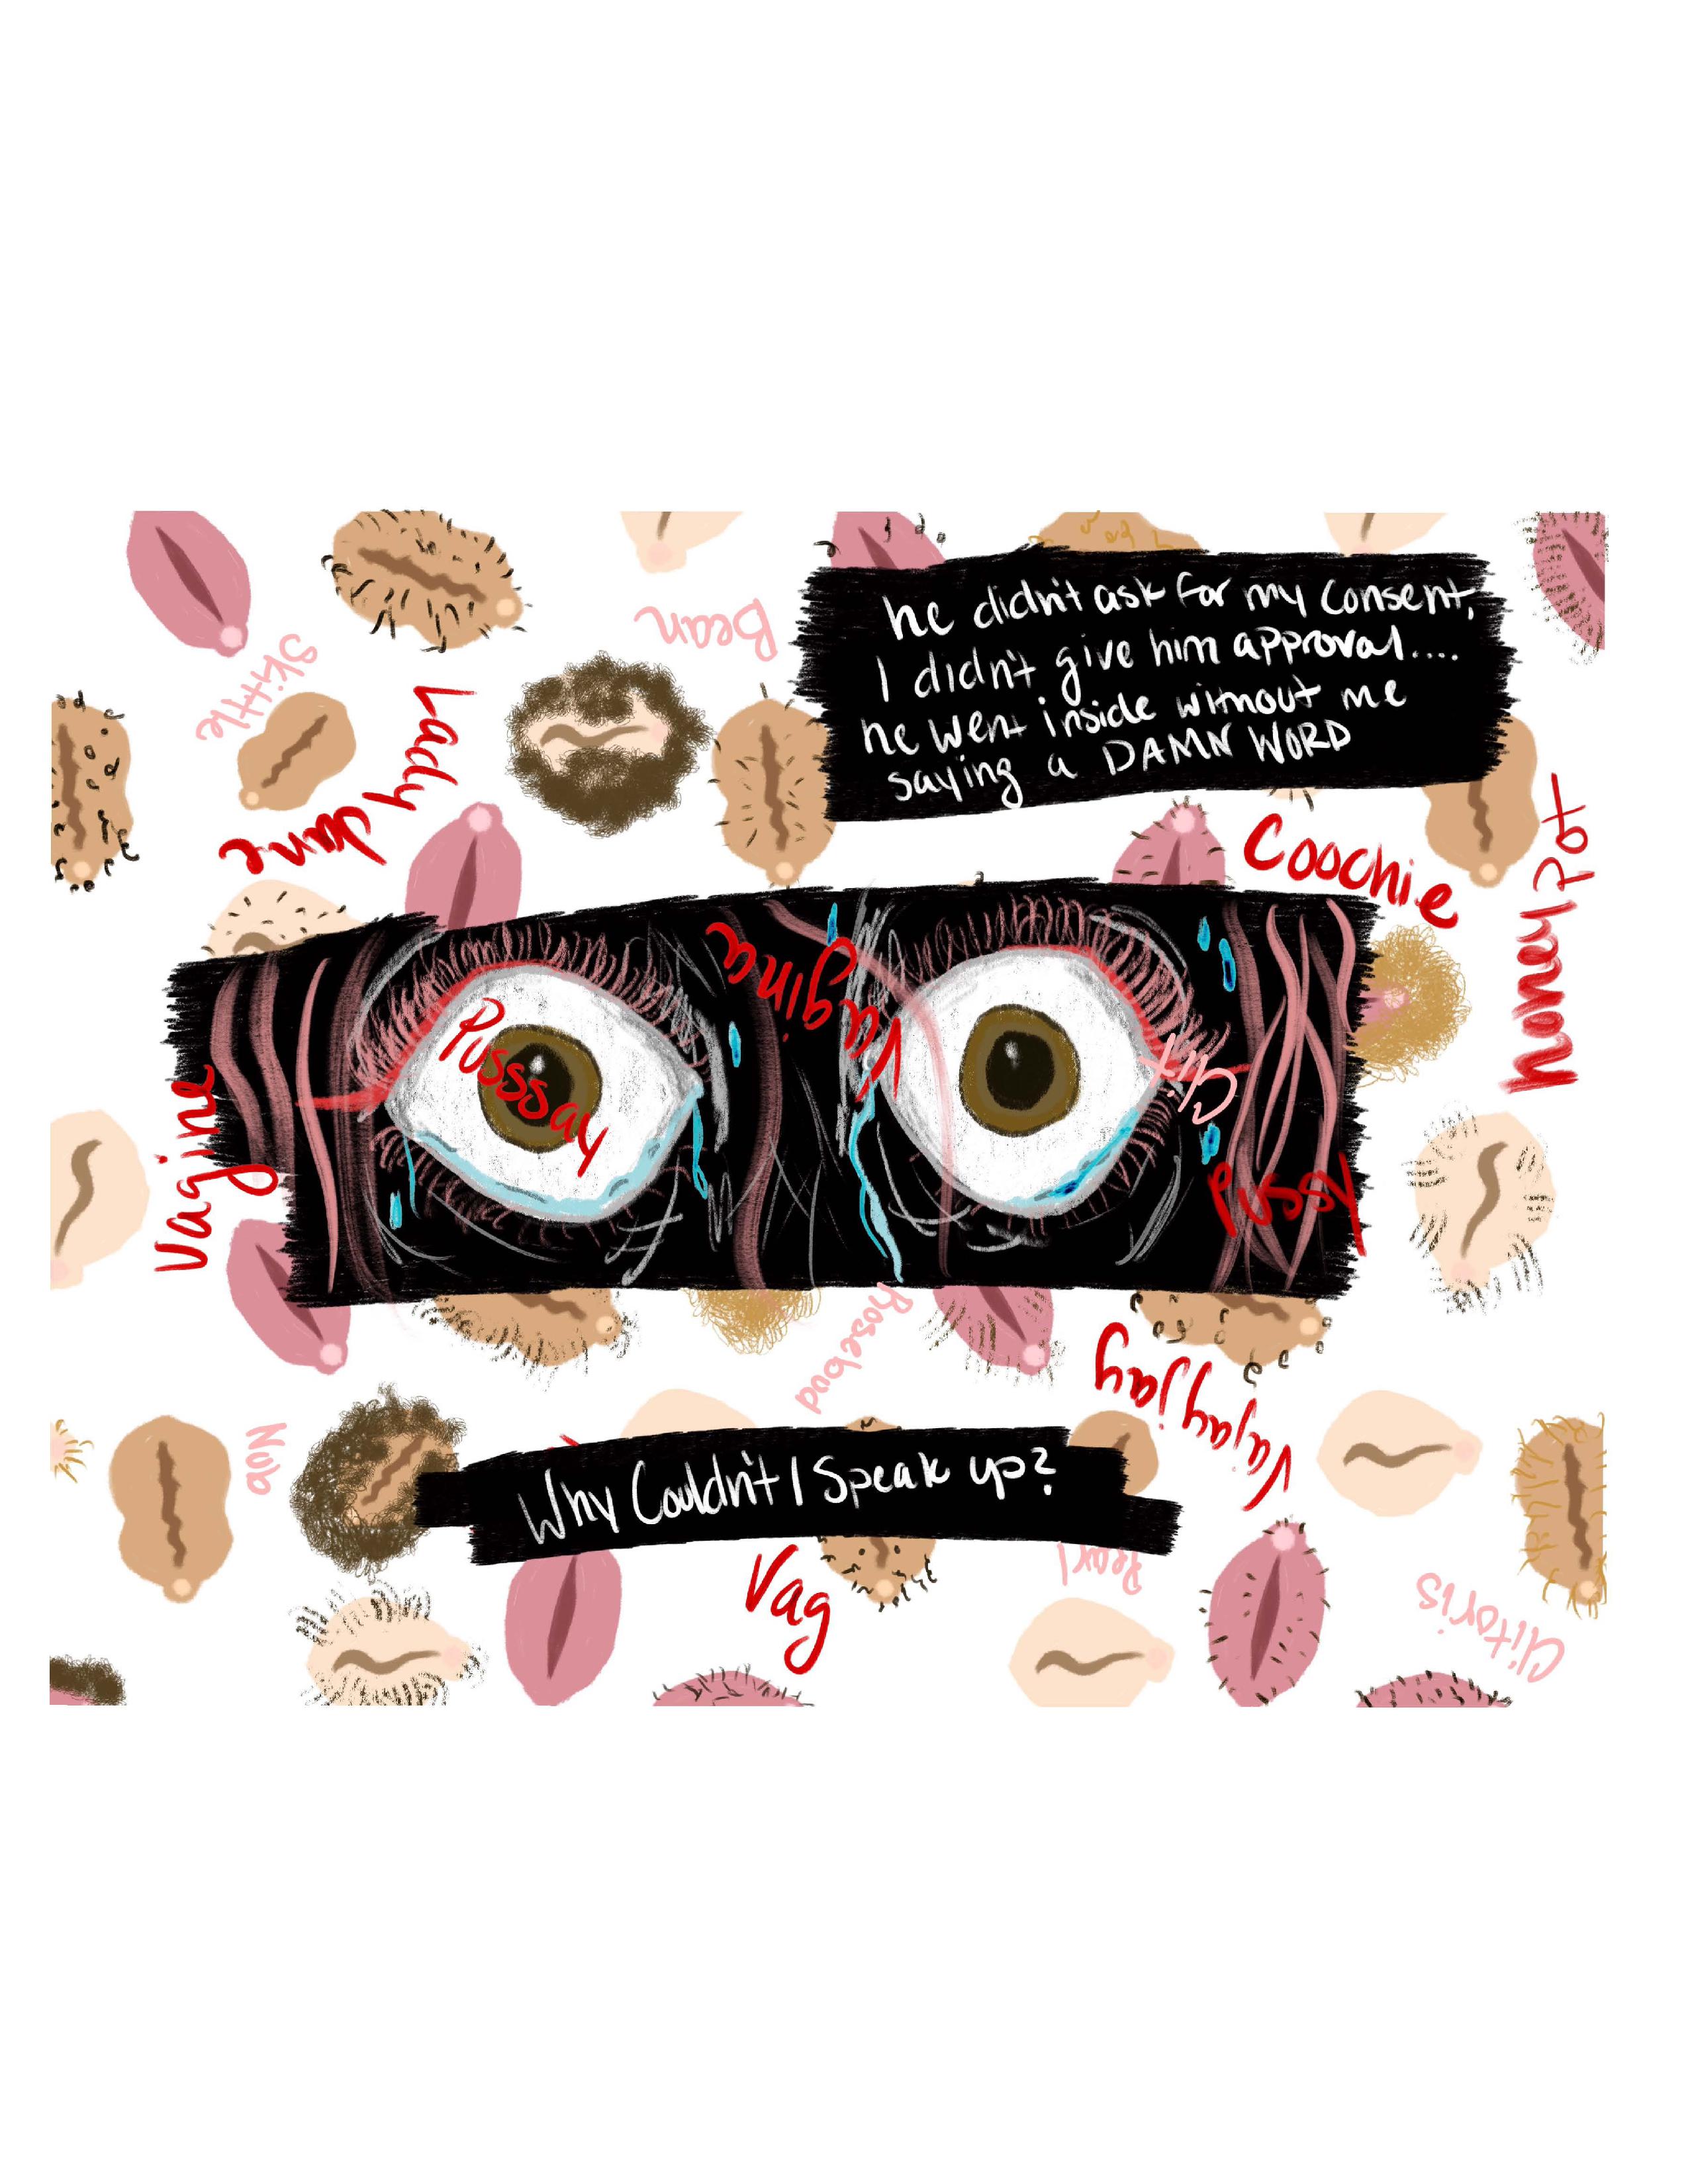 Bean
he didn't ask for my consent,
I didn't give him approval....
he went inside without me
saying a DAMN WORD
Skittle
Lady dane
Coochie
honey Pot
Vagina
Pusssay
Clit
Vagine
Pussy
Rosebood
Vajayjay
Nob
Why Couldn't I Speak up?
Vag
Pearl
Clitoris